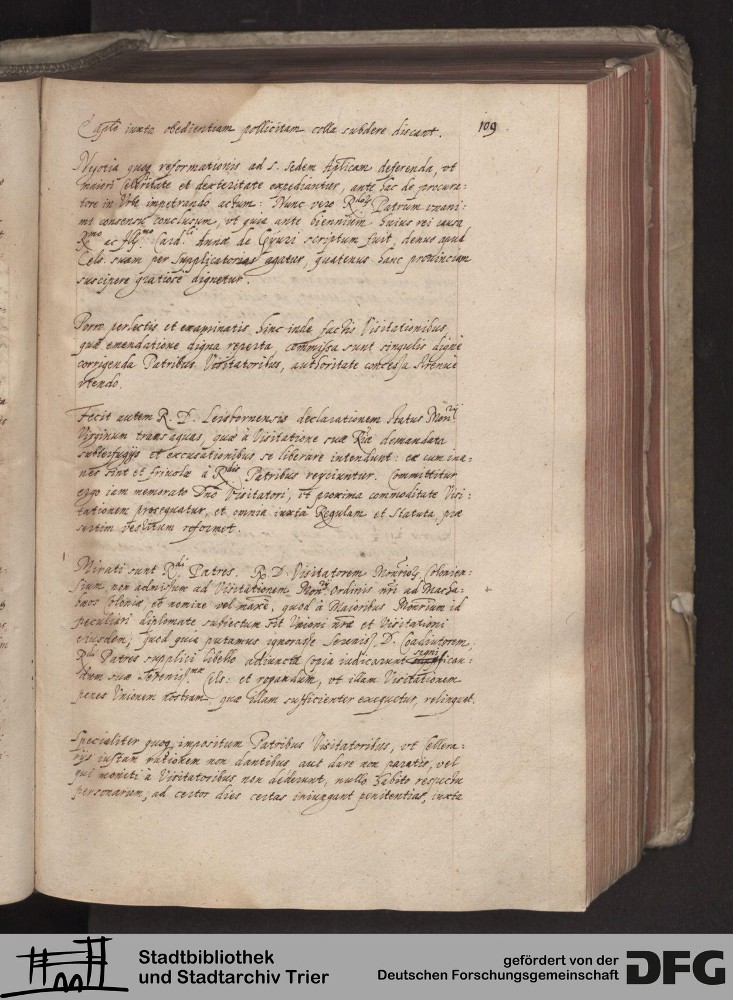 Caplo iuxta obedientiam pollicitam colla subdere discant.
109
Negotia quoq reformationis ad s. sedem Aplicam deferenda, vt
maiori celeritate et dexteritate expediantur, ante hac de procura:
tore in Vrbe impetrando actum: Nunc vero Rdorum Patrum vnani:
mi consensu conclusum, vt quia ante biennium huius rei causa
Rmo ac Illmo Card.li de scriptum fuit, denuo apud
Cels. suam per supplicatorias agatur, quatenus hanc prouinciam
suscipere gratiose dignetur.
Porro perlectis et examinatis hinc inde factis Visitationibus,
quae emendatione digna reperta commissa sunt singulis digne
corrigenda Patribus Visitatoribus, authoritate concessa strenue
vtendo.
Fecit autem R. D. Leisbornensis declarationem status Monrij
Virginum trans aquas, quae a Visitatione suae Rae demandata
subterfugijs et excusationibus se liberare intendunt: eae cum ina:
nes sint et friuolae a Rdis Patribus reijciuntur. Committitur
ergo iam memorato Dno Visitatori, vt proxima commoditate Visi:
tationem prosequatur, et omnia iuxta Regulam et Statuta, prae
sertim vestitum reformet.
Mirati sunt Rdi Patres. R. D. Visitatorem Monrioru Colonien:
sium, non admissum ad Visitationem Monrij Ordinis nri ad Macha:
baeos Coloniae, eo nomine vel maxe, quod a Maioribus Monrium id
peculiari diplomate subiectum sit Vnioni nrae et Visitationi
eiusdem; sed quia putamus ignorasse Sereniss. D. Coadiutorem,
Rdi Patres supplici libello adiuncta copia iudicarunt significan:
dum suae Sereniss.mae Cels: et rogandum, vt illam Visitationem
penes Vnionem nostram, quae illam sufficienter exequetur, relinquat.
Specialiter quoq impositum Patribus Visitatoribus, vt Cellera:
rijs iustam rationem non dantibus aut dare non paratis, vel
qui moniti a Visitatoribus non dederunt, nullo habito respectu
personarum, ad certos dies certas iniungant penitentias, iuxta
Stadtbibliothek
und Stadtarchiv Trier
gefördert von der
Deutschen Forschungsgemeinschaft
DFG